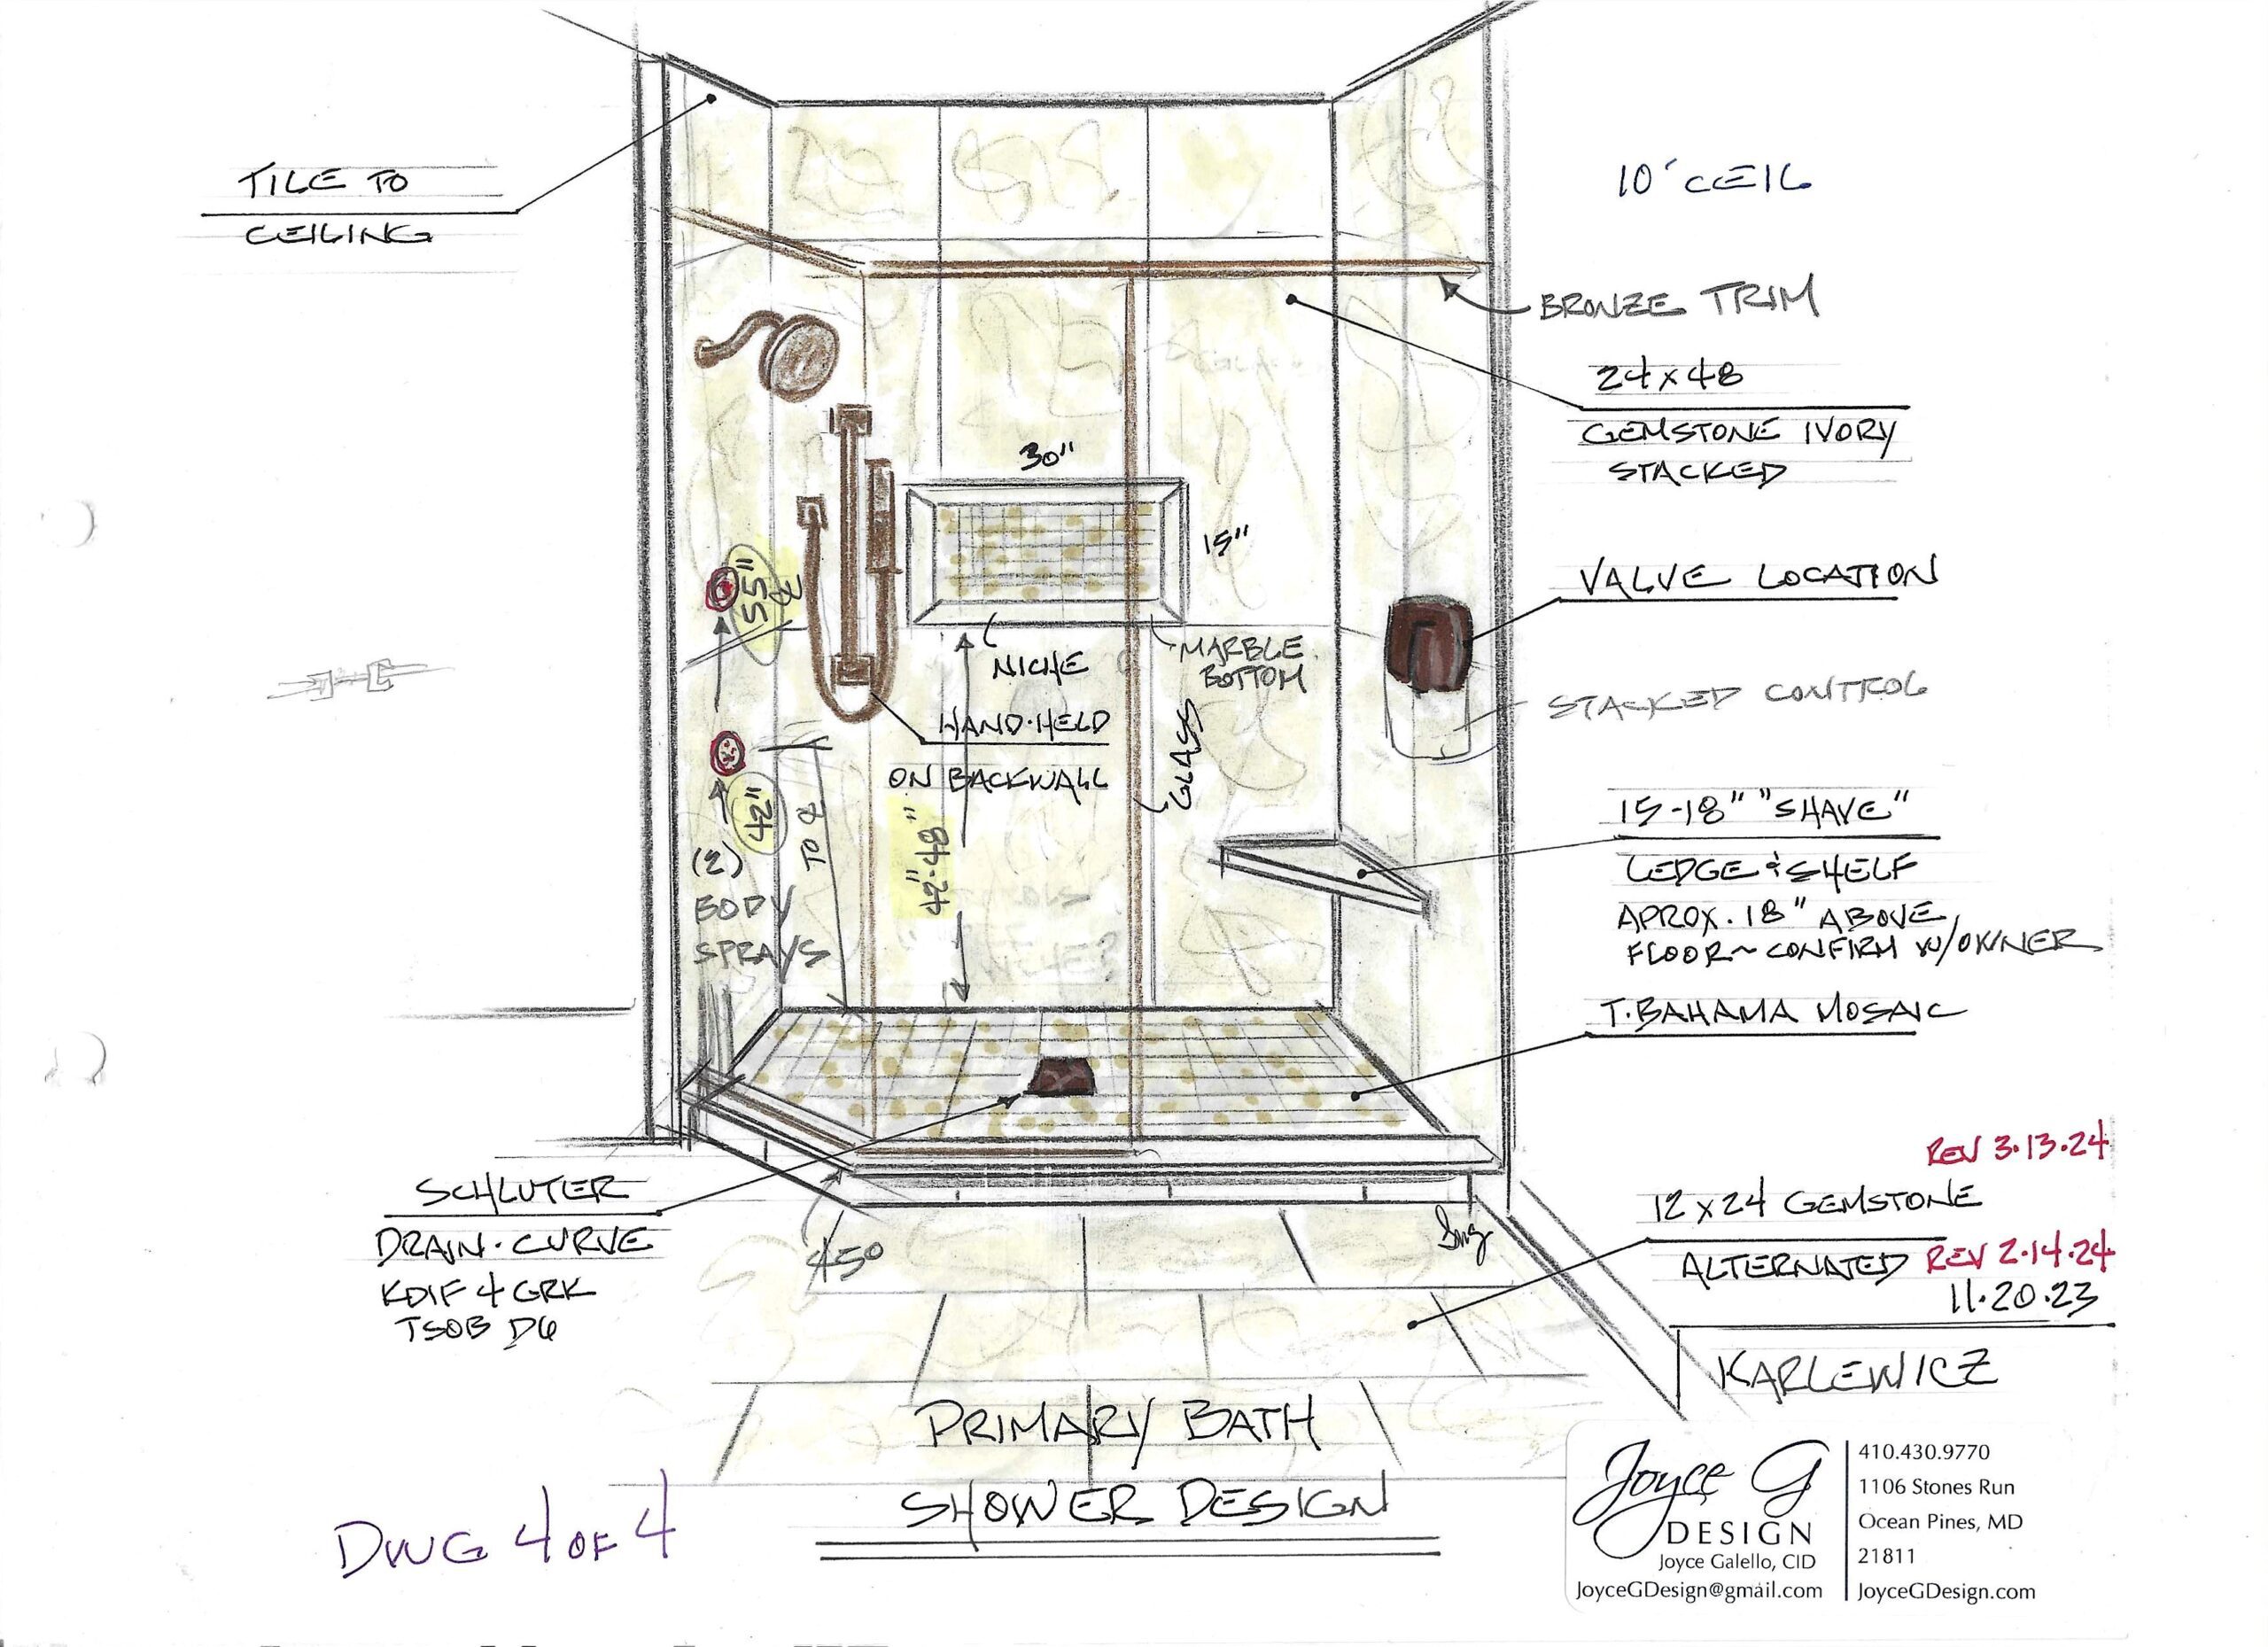 TILE TO
CEILING
10' CEIL
BRONZE TRIM
24x48
GEMSTONE IVORY
STACKED
30"
15"
VALVE LOCATION
55"
NICHE
MARBLE
BOTTOM
STACKED CONTROL
HAND-HELD
ON BACKWALL
GLASS
42"
TO ℄
42"-48"
(2)
BODY
SPRAYS
15-18" "SHAVE"
LEDGE & SHELF
APROX. 18" ABOVE
FLOOR~CONFIRM W/OWNER
T. BAHAMA MOSAIC
SCHLUTER
DRAIN-CURVE
KDIF 4 GRK
TSOB D6
45°
REV 3.13.24
12x24 GEMSTONE
ALTERNATED
REV 2.14.24
11.20.23
KARLEWICZ
PRIMARY BATH
SHOWER DESIGN
DWG 4 OF 4
Joyce G
DESIGN
Joyce Galello, CID
JoyceGDesign@gmail.com
410.430.9770
1106 Stones Run
Ocean Pines, MD
21811
JoyceGDesign.com